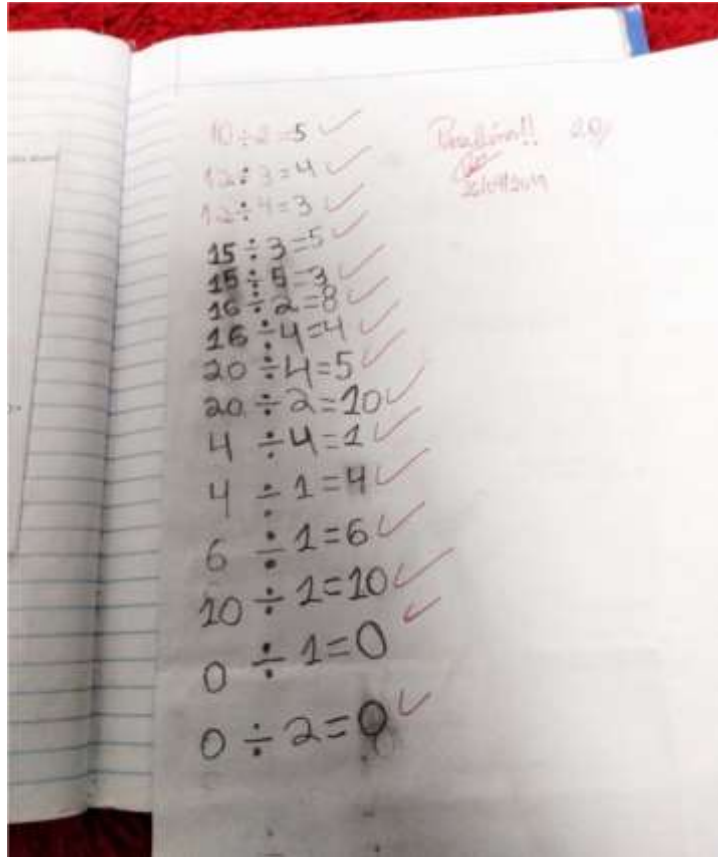 10÷2=5
12÷3=4
12÷4=3
15÷3=5
15÷5=3
16÷2=8
16÷4=4
20÷4=5
20÷2=10
4÷4=1
4÷1=4
6÷1=6
10÷1=10
0÷1=0
0÷2=0